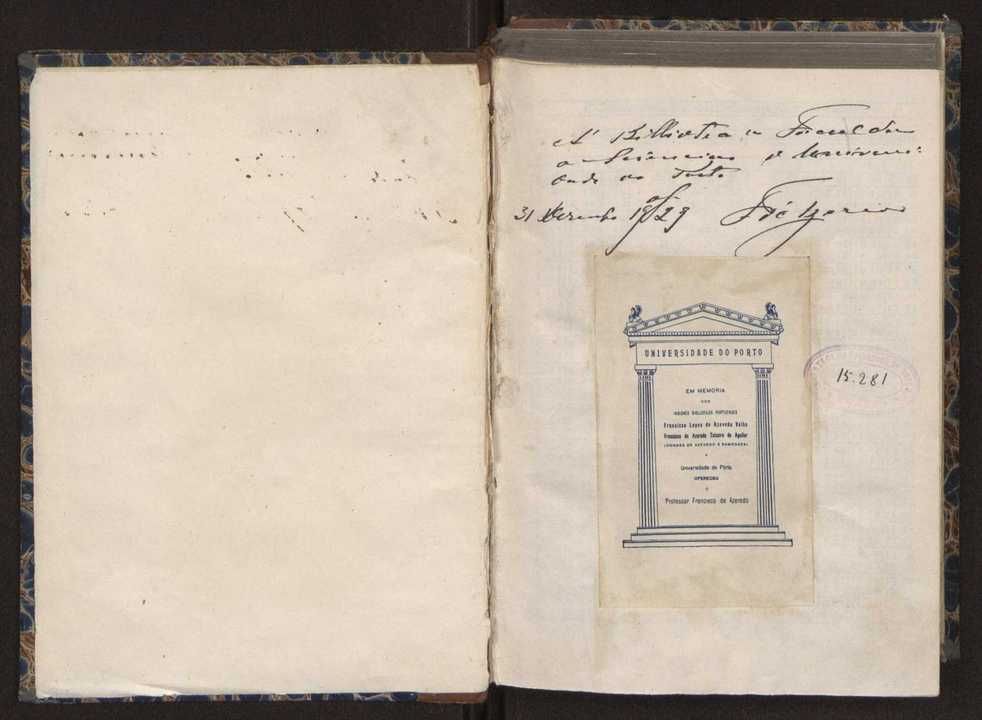 A' Bibliotheca da Faculdade
de Sciencias da Universi-
dade do Porto
31 Dezembro 1929
UNIVERSIDADE DO PORTO
EM MEMORIA
DOS
INSIGNES BIBLIOFILOS PORTUGUESES
Francisco Lopes de Azevedo Velho
Francisco de Azeredo Teixeira de Aguilar
(CONDES DE AZEVEDO E SAMODÃES)
Á
Universidade do Porto
OFERECEU
O
Professor Francisco de Azeredo
15.281